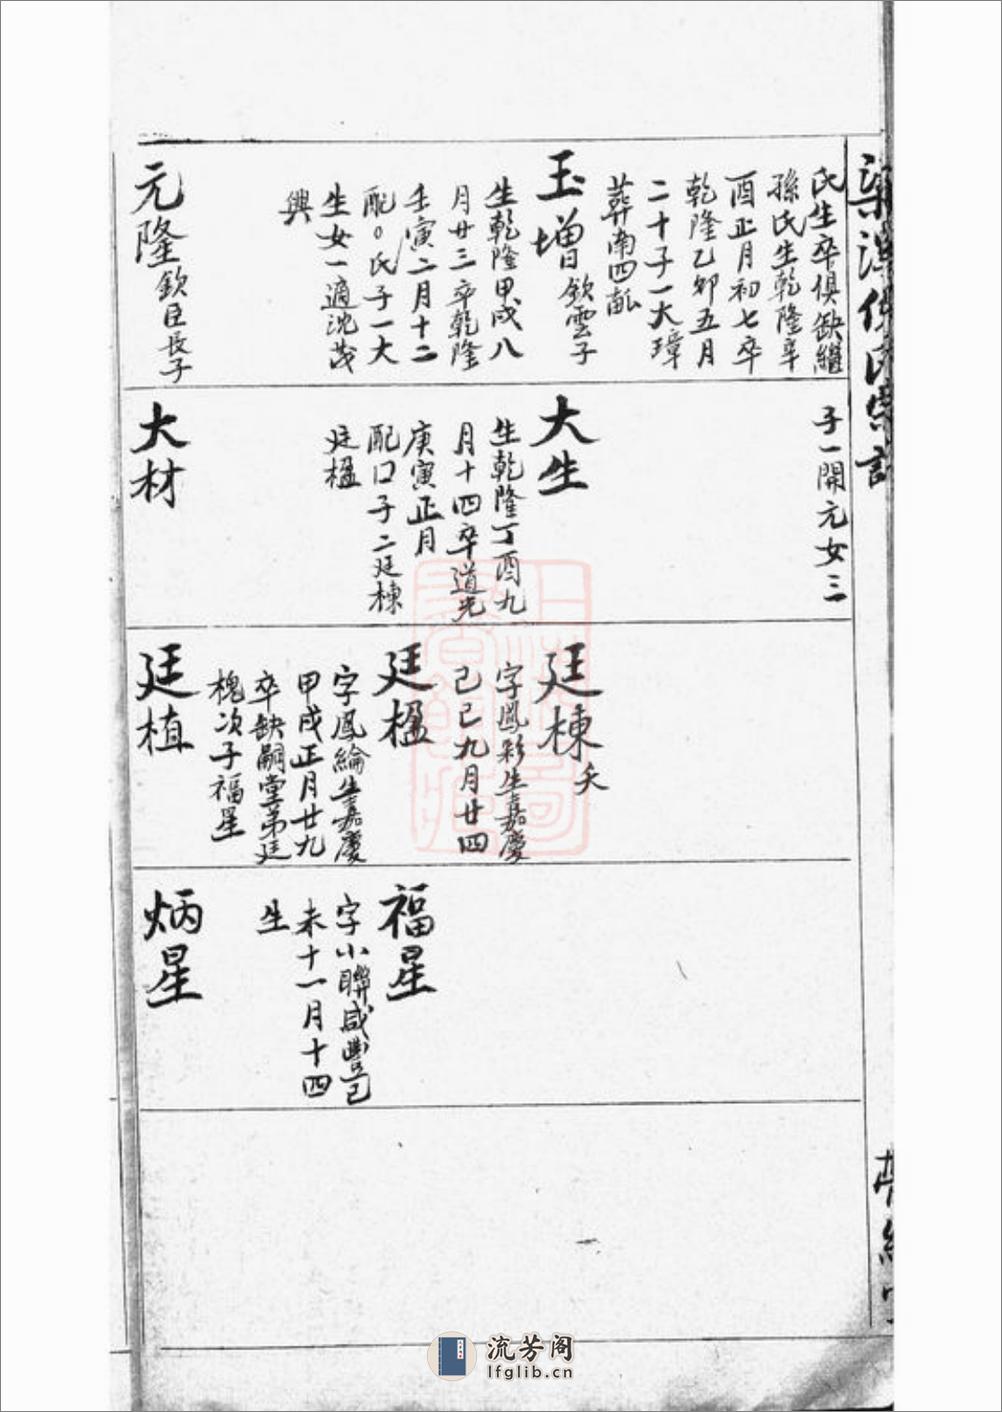 氏生卒俱缺繼
孫氏生乾隆辛
酉正月初七卒
乾隆乙卯五月
二十子一大璋
葬南四畝
玉增 欽雲子
生乾隆甲戌八
月廿三卒乾隆
壬寅二月十二
配○氏子一大
生女一適沈茂
興
元隆 欽臣長子
子一開元女三
大生
生乾隆丁酉九
月十四卒道光
庚寅正月
配口子二廷棟
廷楹
大材
廷棟 夭
字鳳彩生嘉慶
己巳九月廿四
廷楹
字鳳綸生嘉慶
甲戌正月廿九
卒缺嗣堂弟廷
槐次子福星
廷植
福星
字小聯咸豐己
未十一月十四
生
炳星
流芳阁
lfglib.cn